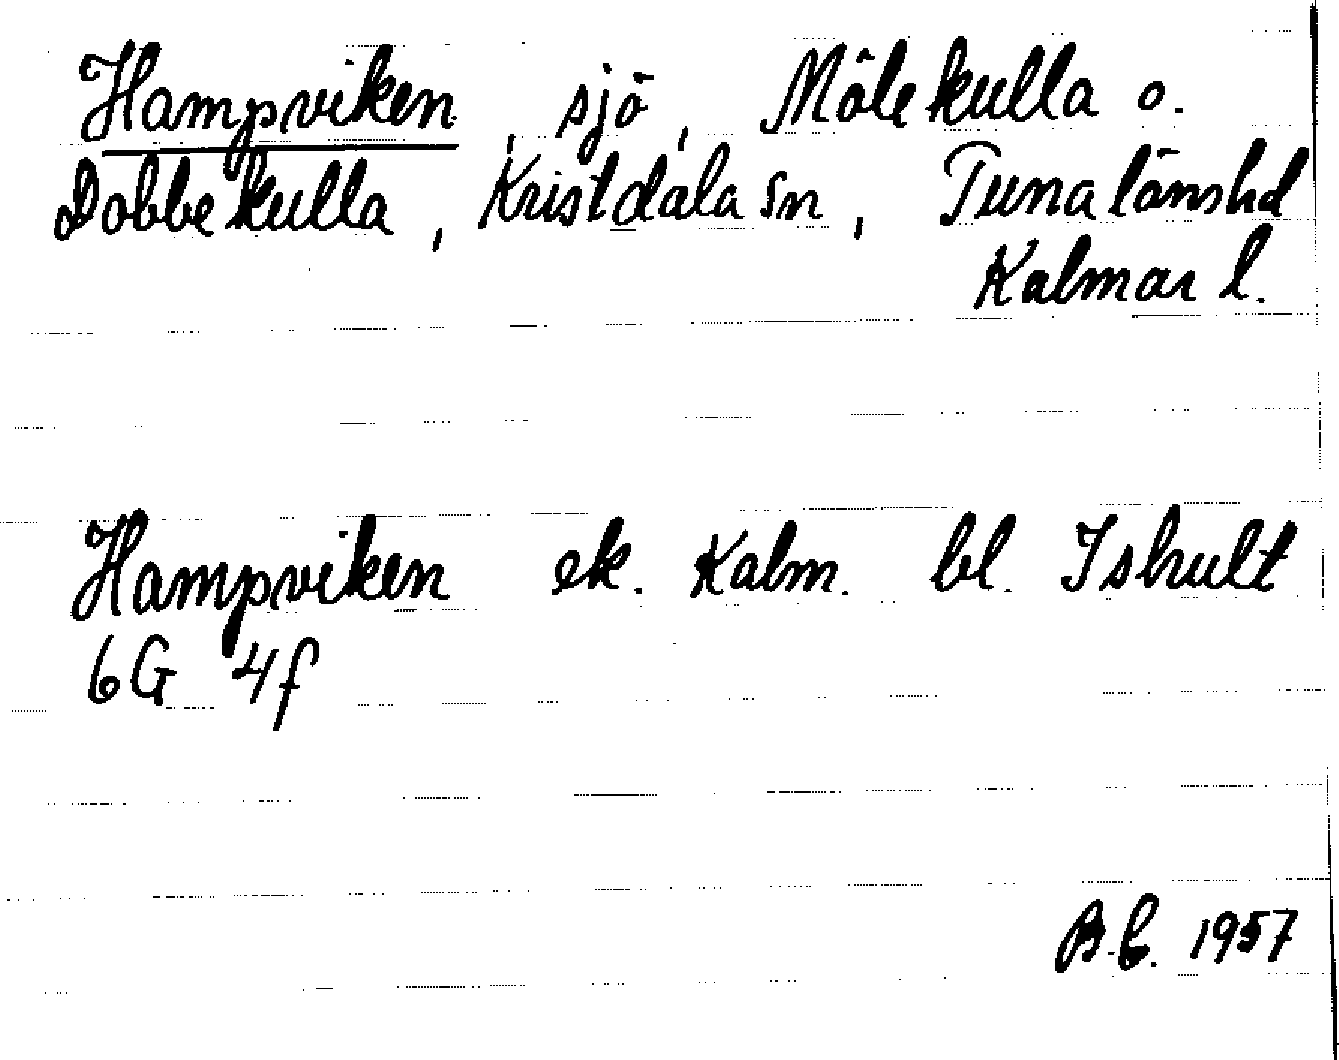 Hampviken, sjö, Mölekulla o.
Dobbekulla, Kristdala sn, Tunalänshd
Kalmar l.
Hampviken ek. Kalm. bl. Ishult
6G 4f
B.E. 1957